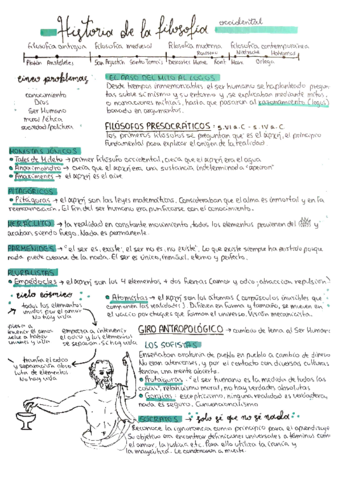 Historia de la filosofía occidental
filosofía antigua filosofía medieval filosofía moderna filosofía contemporánea
Platón Aristóteles San Agustín Santo Tomás Descartes Hume Kant Marx Ortega
Nietzsche Habermas
cinco problemas:
conocimiento
Dios
Ser Humano
moral/ética
sociedad/política
EL PASO DEL MITO AL LOGOS
Desde tiempos inmemorables el ser humano se ha planteado pregun-
tas sobre sí mismo y su entorno y se explicaban mediante mitos
o narraciones míticas, hasta que pasaron al razonamiento (logos)
basado en argumentos.
FILÓSOFOS PRESOCRÁTICOS S.VI a.C - S.IV a.C
Los primeros filósofos se preguntan que es el ἀρχή, el principio
fundamental para explicar el origen de la realidad
MONISTAS JÓNICOS
• Tales de Mileto → primer filósofo occidental, creía que el ἀρχή era el agua
• Anaximandro → creía que el ἀρχή era una sustancia indeterminada "apeiron"
• Anaxímenes → el ἀρχή es el aire.
PITAGÓRICOS
• Pitágoras → el ἀρχή son las leyes matemáticas. Consideraban que el alma es inmortal y en la
reencarnación. El fin del ser humano era purificarse con el conocimiento.
HERÁCLITO → la realidad en constante movimiento, todos los elementos provienen del y
acaban siendo fuego. Nada es permanente.
PARMÉNIDES → "el ser es, existe, el ser no es, no existe". Lo que existe siempre ha existido porque
nada puede crearse de la nada. El ser es único, inmóvil, eterno y perfecto.
PLURALISTAS
• Empédocles → el ἀρχή son los 4 elementos, + dos fuerzas (amor y odio, atracción repulsión)
• ciclo cósmico
todos los elementos
unidos por el amor
No hay vida
• Atomistas → el ἀρχή son los átomos (corpúsculos invisibles que
componen las realidades). Difieren en forma y tamaño, se mueven en
el vacío por choques que forman el universo. Visión mecanicista.
empieza a intervenir
el odio y los elementos
se separan. Si hay vida
vuelve a
triunfa el odio
y separación
de elementos
No hay vida
GIRO ANTROPOLÓGICO → cambio de tema al Ser Humano
LOS SOFISTAS
Enseñaban oratoria de pueblo en pueblo a cambio de dinero
No eran atenienses, y por el contacto con diversas culturas
tenían una mente abierta.
• Protágoras: "el ser humano es la medida de todas las
cosas", relativismo moral, no hay verdades absolutas
• Gorgias: escepticismo, ninguna realidad es verdadera,
nada es seguro. Convencionalismo
SÓCRATES: "solo sé que no sé nada"
Reconoce la ignorancia como principio para el aprendizaje
Su objetivo era encontrar definiciones universales a términos como
el amor, la justicia etc. Para ello utiliza la ironía y
la mayéutica. Le condenaron a muerte.